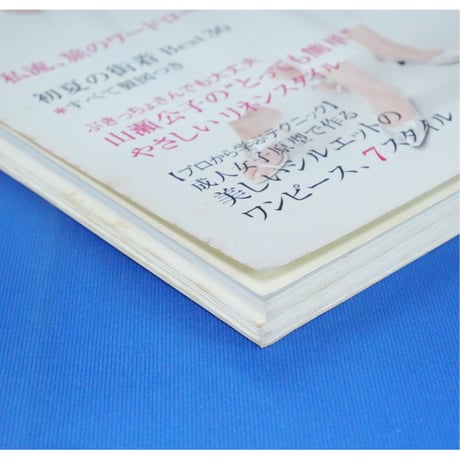 私流、旅のワードロー
初夏の街着 Best 36
*すべて製図つき
ぶきっちょさんでも大丈夫
山瀬公子の"とっても簡単"
やさしいリネンスタイル
【プロから学ぶテクニック】
成人女子原型で作る
美しいシルエットの
ワンピース、7スタイル